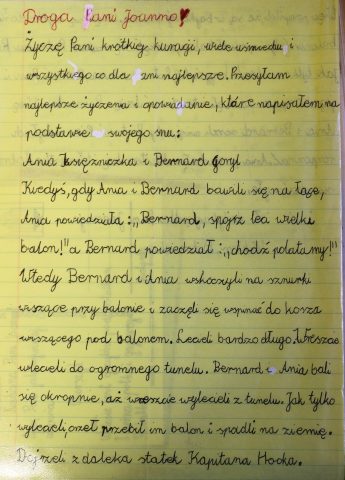 Droga Pani Joanno!
Życzę Pani krótkiej kuracji, wiele uśmiechu i
wszystkiego co dla Pani najlepsze. Przesyłam
najlepsze życzenia i opowiadanie, które napisałem na
podstawie swojego snu:
Ania Księżniczka i Bernard Goryl
Kiedyś, gdy Ania i Bernard bawili się na łące,
Ania powiedziała: „Bernard, spójrz leci wielki
balon!" a Bernard powiedział: „chodź polatamy!"
Wtedy Bernard i Ania wskoczyli na sznurki
wiszące przy balonie i zaczęli się wspinać do kosza
wiszącego pod balonem. Lecieli bardzo długo. Wreszcie
wlecieli do ogromnego tunelu. Bernard i Ania bali
się okropnie, aż wreszcie wylecieli z tunelu. Jak tylko
wylecieli, orzeł przebił im balon i spadli na ziemię.
Dojrzeli z daleka statek Kapitana Hooka.